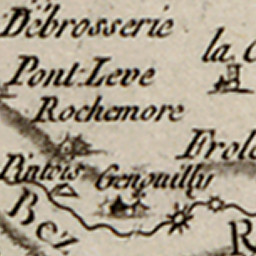 Débrosserie
la
Pont Leve
Rochemore
Frol
Pintois
Genouilly
Bez
R